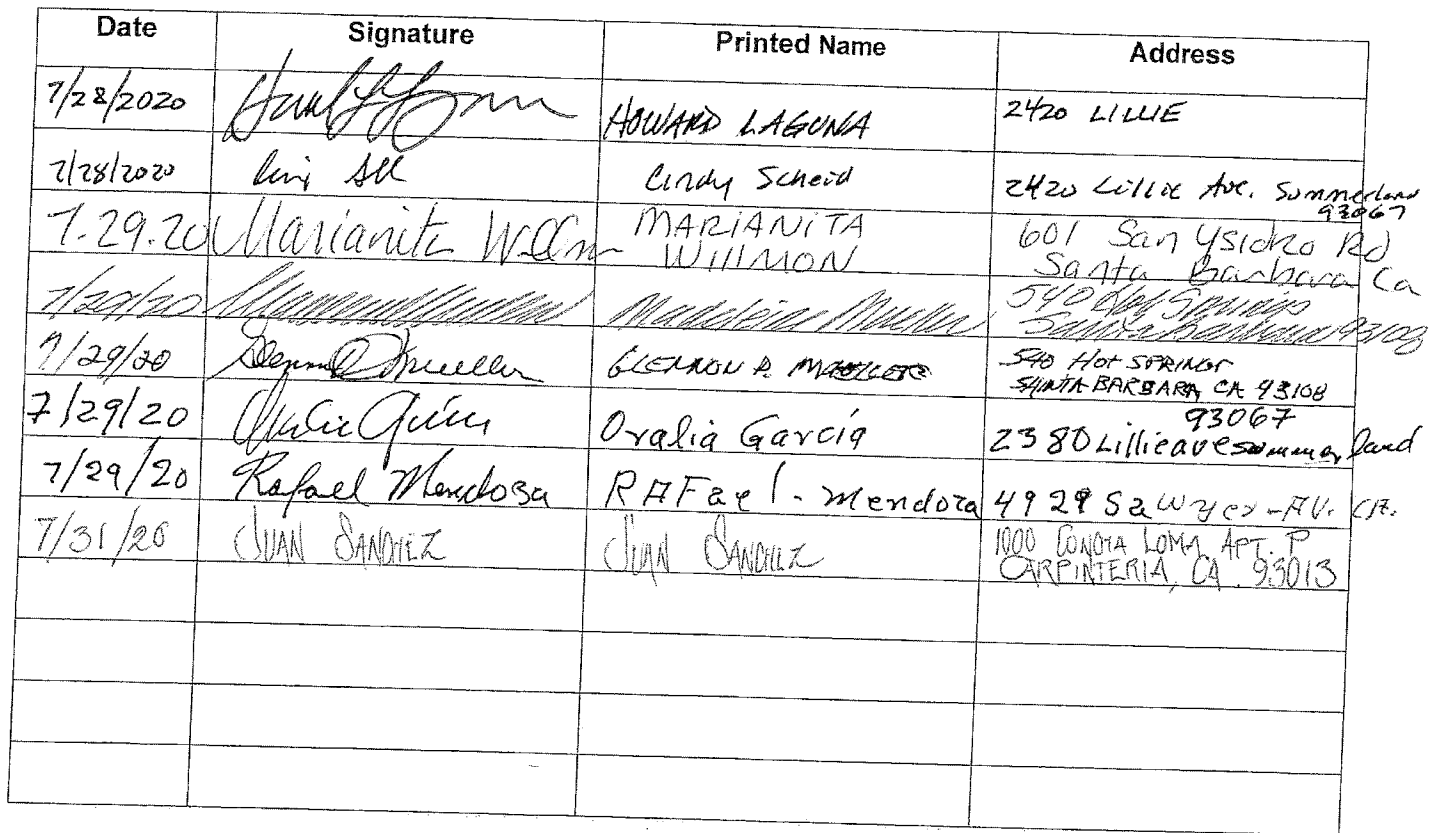 Date Signature Printed Name Address
7/28/2020 HOWARD LAGUNA 2420 LILLIE
7/28/2020 Cindy Scheid 2420 Lillie Ave. Summerland
93067
7.29.20 Marianita Willmon MARIANITA WILLMON 601 San Ysidro Rd
Santa Barbara Ca
7/29/20 Madeleine Mueller 540 Hot Springs
Santa Barbara 93108
7/29/20 Glennon Mueller GLENNON P. MUELLER 540 HOT SPRINGS
SANTA BARBARA, CA 93108
7/29/20 Oralia García 93067
2380 Lillie ave summerland
7/29/20 Rafael Mendoza RAFael - Mendoza 4929 Sawyer - AV. CA.
7/31/20 JUAN SANCHEZ JUAN SANCHEZ 1000 CONCHA LOMA APT. P
CARPINTERIA, CA. 93013